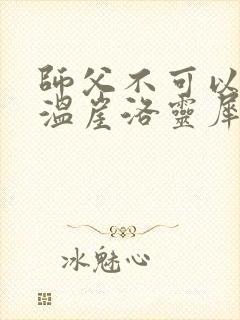 師父不可以
溫崖洛靈犀
冰魅心